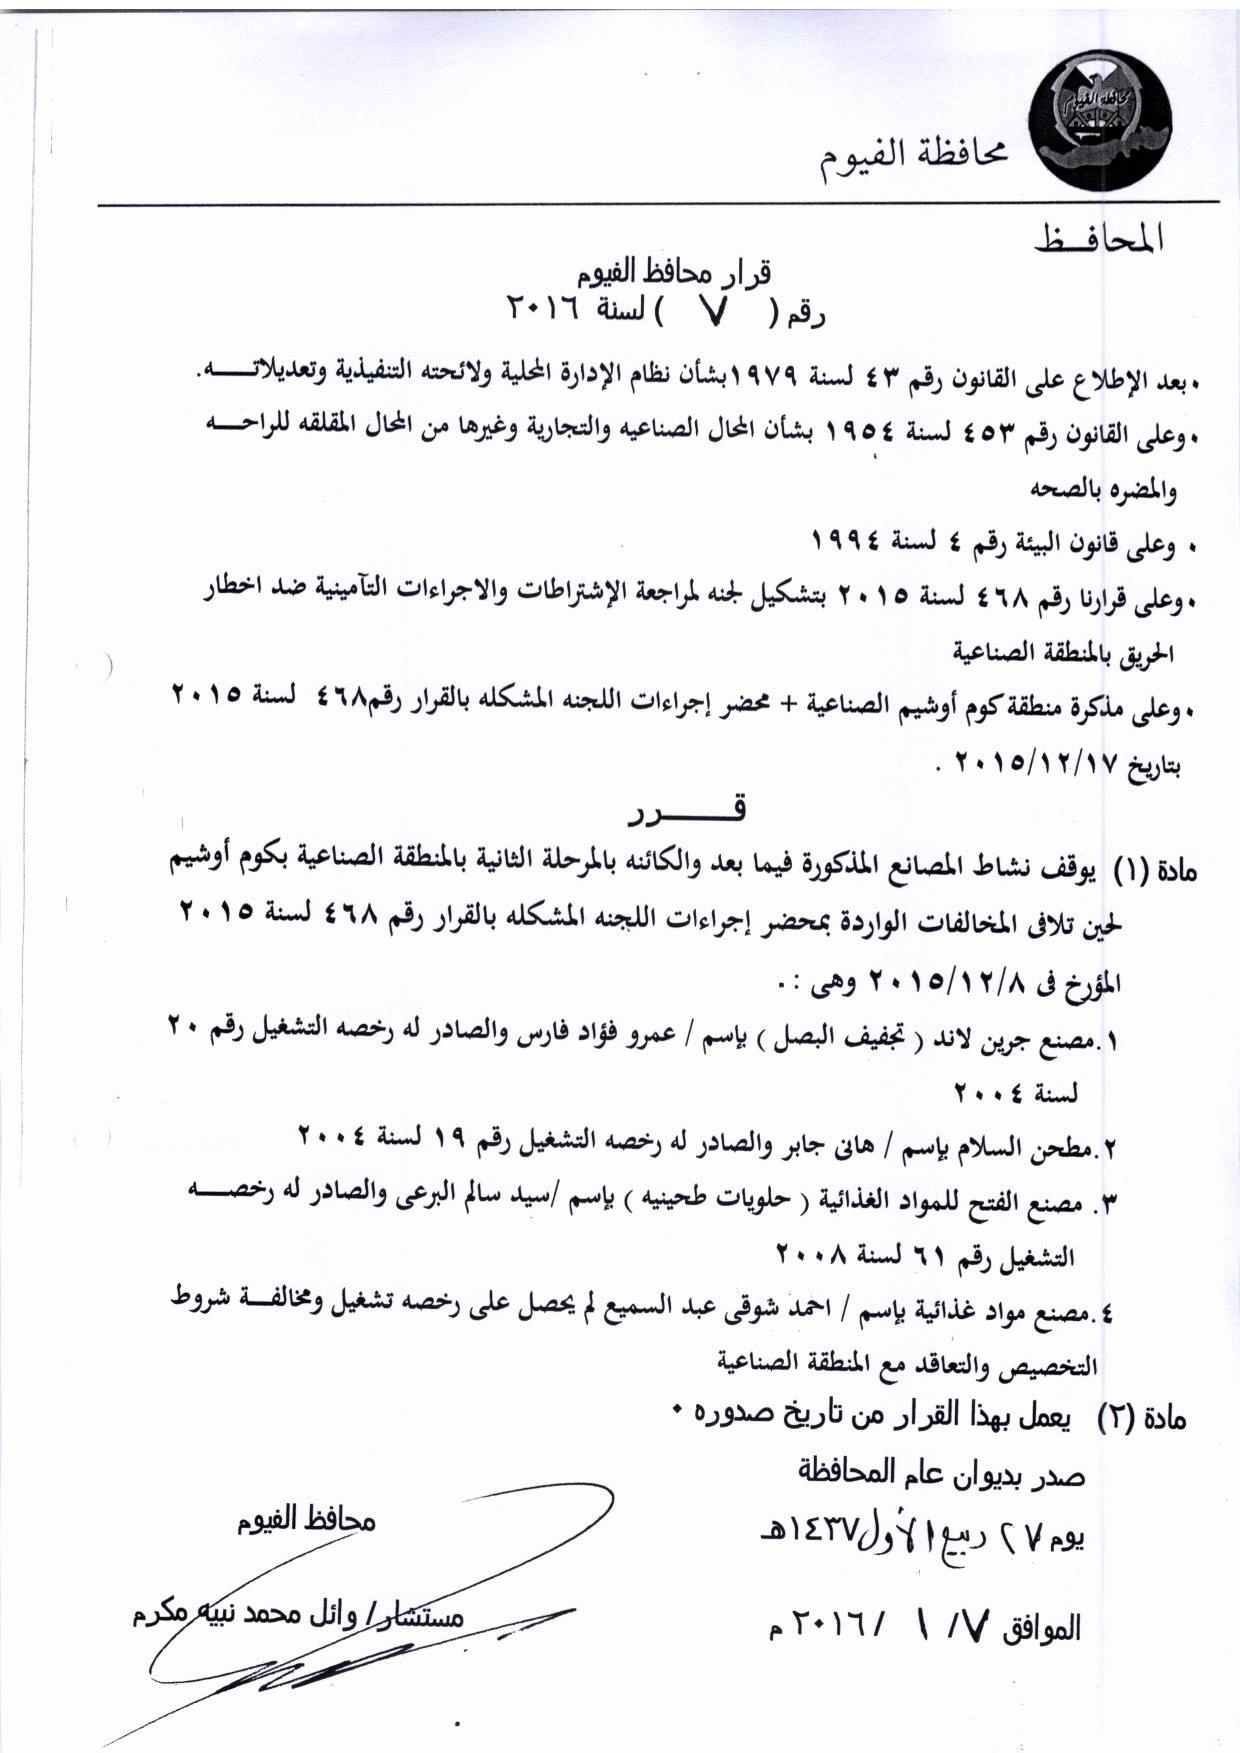 محافظة الفيوم
محافظة الفيوم
المحافـــظ
قرار محافظ الفيوم
رقم ( ٧ ) لسنة ٢٠١٦
• بعد الإطلاع على القانون رقم ٤٣ لسنة ١٩٧٩بشأن نظام الإدارة المحلية ولائحته التنفيذية وتعديلاتــــه.
• وعلى القانون رقم ٤٥٣ لسنة ١٩٥٤ بشأن المحال الصناعيه والتجارية وغيرها من المحال المقلقه للراحــــه
والمضره بالصحه
• وعلى قانون البيئة رقم ٤ لسنة ١٩٩٤
• وعلى قرارنا رقم ٤٦٨ لسنة ٢٠١٥ بتشكيل لجنه لمراجعة الإشتراطات والاجراءات التآمينية ضد اخطار
الحريق بالمنطقة الصناعية
• وعلى مذكرة منطقة كوم أوشيم الصناعية + محضر إجراءات اللجنه المشكله بالقرار رقم٤٦٨ لسنة ٢٠١٥
بتاريخ ٢٠١٥/١٢/١٧ .
قـــــــرر
مادة (١) يوقف نشاط المصانع المذكورة فيما بعد والكائنه بالمرحلة الثانية بالمنطقة الصناعية بكوم أوشيم
لحين تلافى المخالفات الواردة بمحضر إجراءات اللجنه المشكله بالقرار رقم ٤٦٨ لسنة ٢٠١٥
المؤرخ فى ٢٠١٥/١٢/٨ وهى :.
١.مصنع جرين لاند ( تجفيف البصل ) بإسم / عمرو فؤاد فارس والصادر له رخصه التشغيل رقم ٢٠
لسنة ٢٠٠٤
٢.مطحن السلام بإسم / هانى جابر والصادر له رخصه التشغيل رقم ١٩ لسنة ٢٠٠٤
٣. مصنع الفتح للمواد الغذائية ( حلويات طحينيه ) بإسم /سيد سالم البرعى والصادر له رخصــــه
التشغيل رقم ٦١ لسنة ٢٠٠٨
٤.مصنع مواد غذائية بإسم / احمد شوقى عبد السميع لم يحصل على رخصه تشغيل ومخالفــة شروط
التخصيص والتعاقد مع المنطقة الصناعية
مادة (٢) يعمل بهذا القرار من تاريخ صدوره ٠
صدر بديوان عام المحافظة
يوم ٢٧ ربيع الأول ١٤٣٧هـ
الموافق ٧/ ١ /٢٠١٦ م
محافظ الفيوم
مستشار/ وائل محمد نبيه مكرم